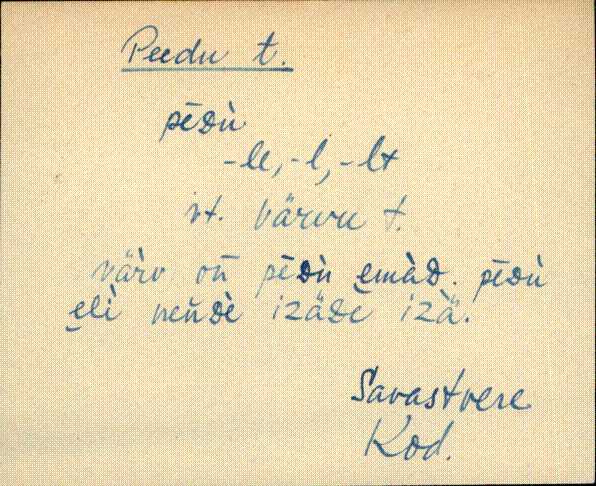 Peedu t.
pēᴅù
-le, -l, -lt
vt. Värvu t.
värv oñ pēᴅù emàᴅ. pēᴅù
elì neñᴅè izäᴅè izä̀.
Savastvere
Kod.